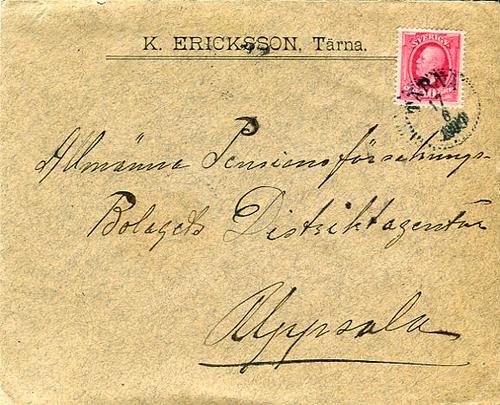 K. ERICKSSON, Tärna.
SVERIGE
TÄRNA
17
6
Allmänna Pensionsförsäkrings-
Bolagets Distriktagentur
Uppsala